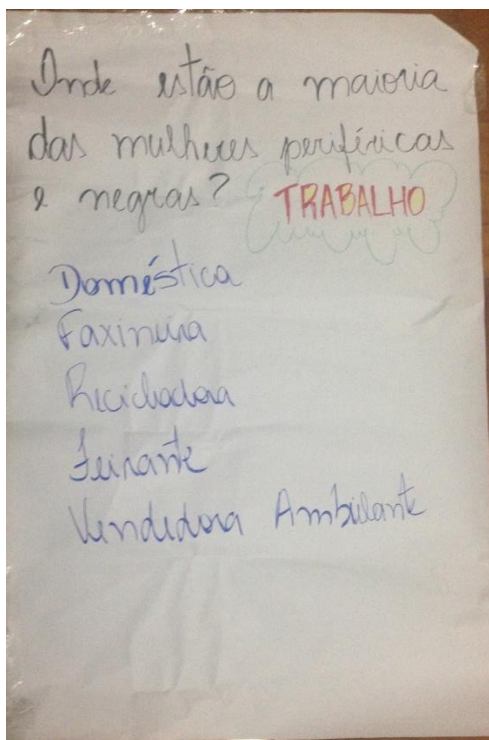 Onde estão a maioria
das mulheres periféricas
e negras? TRABALHO
Doméstica
Faxineira
Recicladora
Feirante
Vendedora Ambulante